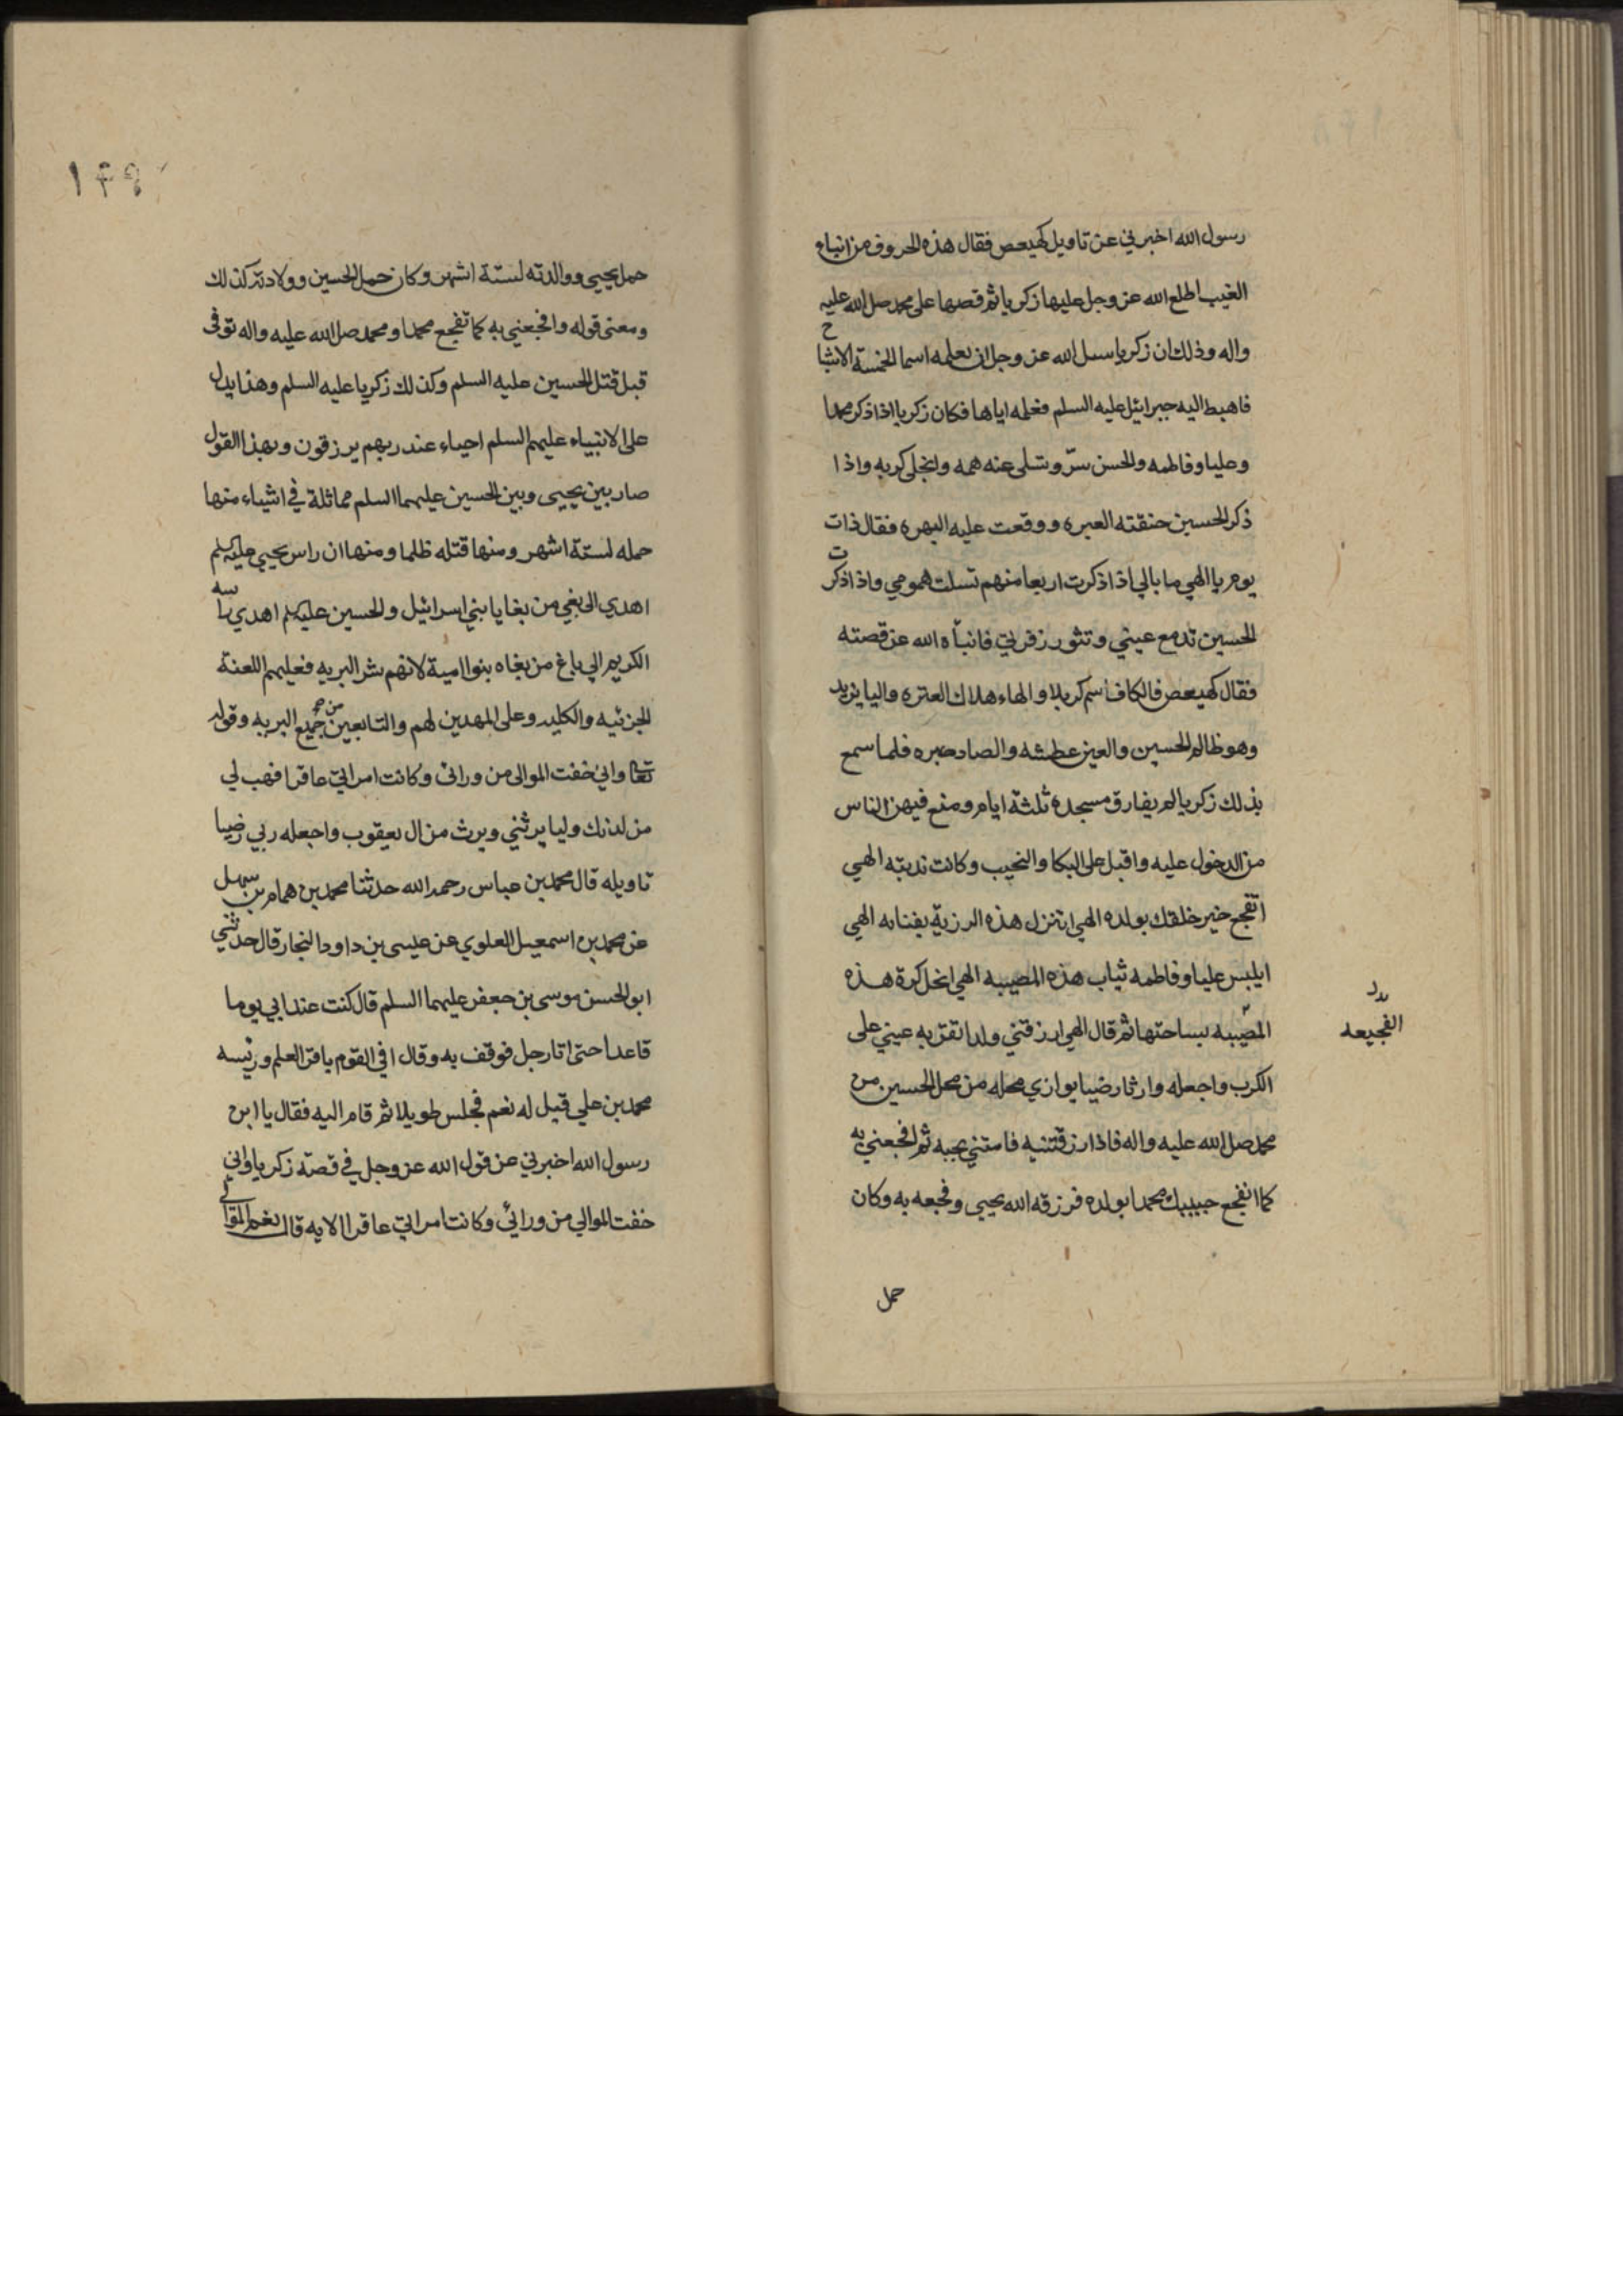 رسول الله اخبرني عن تاويل كهيعص فقال هذه الحروف من انباء
الغيب اطلع الله عز وجل عليها زكريا ثم قصها على محمد صلى الله عليه
واله وذلك ان زكريا سىل الله عز وجل ان يعلمه اسما الخمسة الاشباح
فاهبط اليه جبرائيل عليه السلم فعلمه اياها فكان زكريا اذا ذكر محمدا
وعليا وفاطمه والحسن سرّ وتسلى عنه همه وانجلى كربه واذا
ذكر الحسين خنقته العبره ووقعت عليه البهره فقال ذات
يوم يا الهي ما بالي اذا ذكرت اربعا منهم تسلت همومي واذا ذكرت
الحسين تدمع عيني وتثور زفرتي فانبأه الله عن قصته
فقال كهيعص فالكاف اسم كربلا والهاء هلاك العتره واليا يزيد
وهو ظالم الحسين والعين عطشه والصاد صبره فلما سمع
بذلك زكريا لم يفارق مسجده ثلثة ايام ومنع فيهن الناس
من الدخول عليه واقبل على البكا والنحيب وكانت ندبته الهي
اتفجع خير خلقك بولده الهي اتنزل هذه الرزية بفنائه الهي
ايلبس عليا وفاطمه ثياب هذه المصيبه الهي اتحل كربة هذه
المصيبه بساحتها ثم قال الهي ارزقني ولدا تقر به عيني على
بدل
الفجيعه
الكرب واجعله وارثا رضيا يوازي محله من محل الحسين من
محمد صلى الله عليه واله فاذا رزقتنيه فامتني بحبه ثم افجعني به
كما تفجع حبيبك محمدا بولده فرزقه الله يحيى وفجعه به وكان
حمل
١٤٩
حمل يحيى ووالدته لستة اشهر وكان حمل الحسين وولادته كذلك
ومعنى قوله وافجعني به كما تفجع محمدا ومحمد صلى الله عليه واله توفى
قبل قتل الحسين عليه السلم وكذلك زكريا عليه السلم وهذا يدل
على الانبياء عليهم السلم احياء عند ربهم يرزقون وبهذا القول
صار بين يحيى وبين الحسين عليهما السلم مماثلة في اشياء منها
حمله لستة اشهر ومنها قتله ظلما ومنها ان راس يحيى عليه السلم
اهدي الى بغي من بغايا بني اسرائيل والحسين عليه السلم اهدي راسه
الكريم الى باغ من بغاه بنو امية لانهم شر البريه فعليهم اللعنة
الجزئيه والكليه وعلى المهدين لهم والتابعين من جميع البريه وقوله
تعا واني خفت الموالى من ورائى وكانت امراتي عاقرا فهب لي
من لدنك وليا يرثني ويرث من ال يعقوب واجعله ربي رضيا
تاويله قال محمد بن عباس رحمه الله حدثنا محمد بن همام بن سهيل
عن محمد بن اسمعيل العلوي عن عيسى بن داود النجار قال حدثني
ابو الحسن موسى بن جعفر عليهما السلم قال كنت عند ابي يوما
قاعدا حتى اتا رجل فوقف به وقال افي القوم باقر العلم ورئيسه
محمد بن علي قيل له نعم فجلس طويلا ثم قام اليه فقال يا ابن
رسول الله اخبرني عن قول الله عز وجل في قصة زكريا واني
خفت الموالي من ورائي وكانت امراتي عاقرا الايه قال نعم الموالى